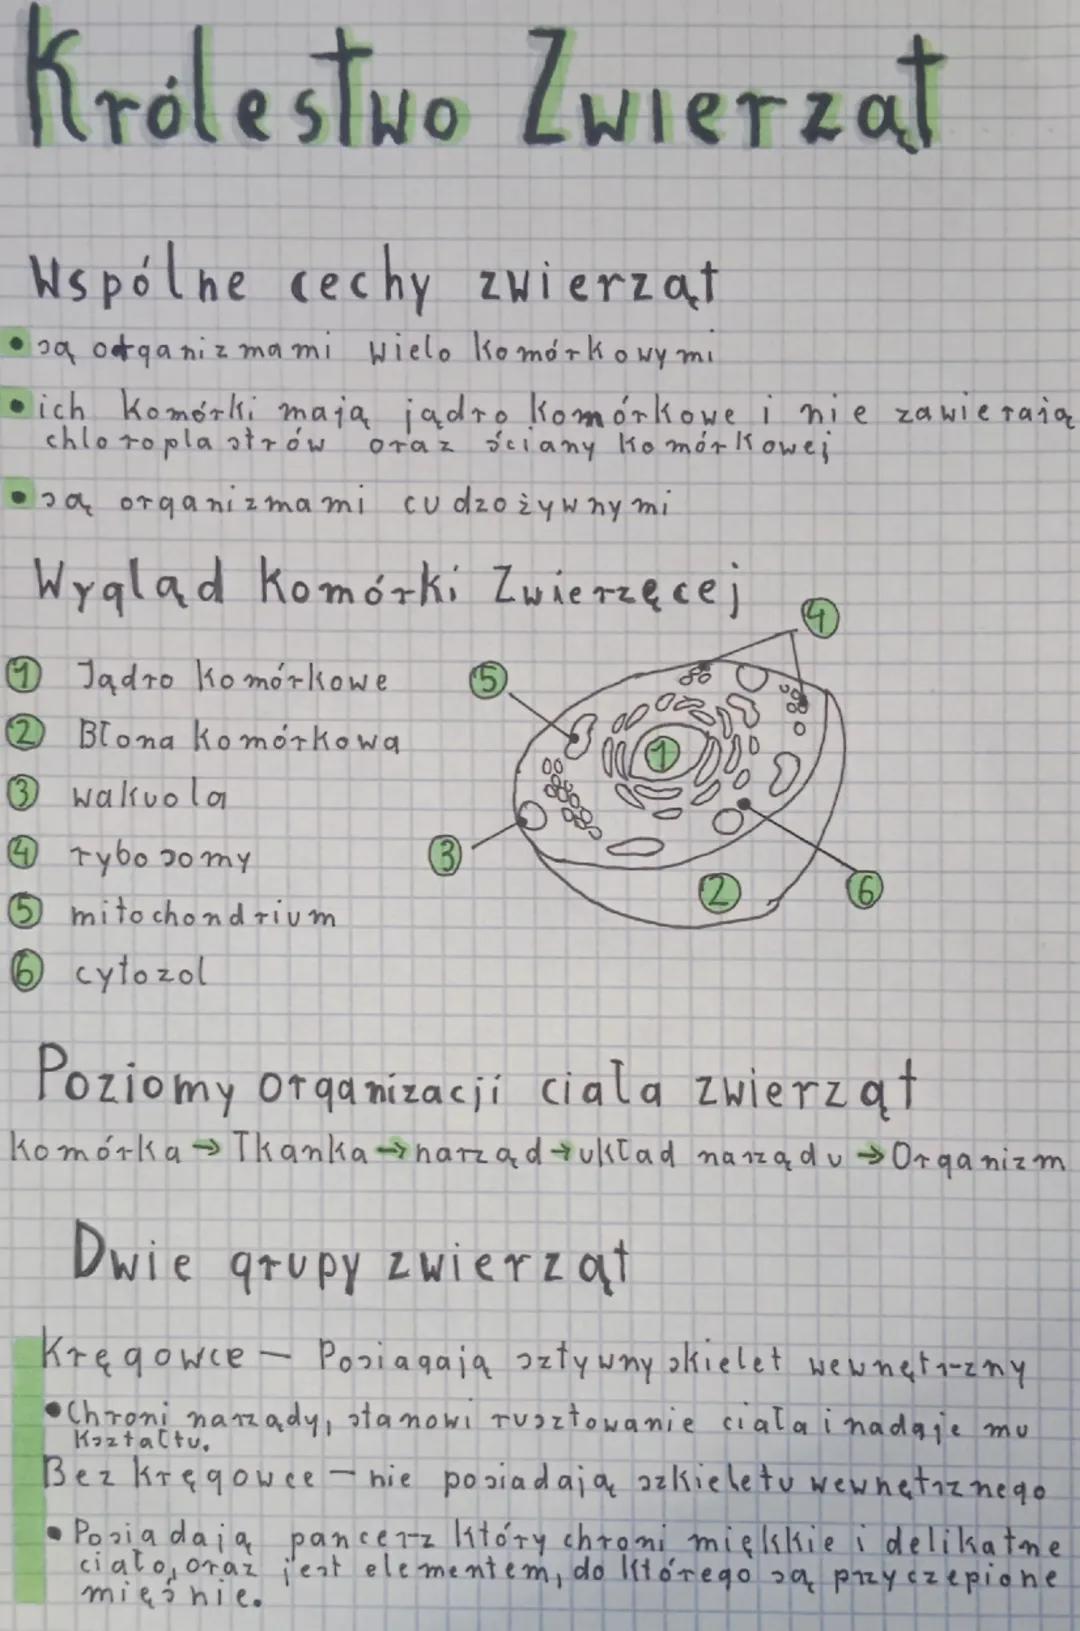 Królestwo Zwierząt
Wspólne cechy zwierząt
• są organizmami wielo komórkowymi
• ich komórki mają jądro komórkowe i nie zawierają
chloroplastrów oraz ściany komórkowej
• są organizmami cudzożywnymi
Wygląd Komórki Zwierzęcej
4
1 Jądro komórkowe
5
2 Błona komórkowa
1
3 wakuola
4 rybosomy
3
2
6
5 mitochondrium
6 cytozol
Poziomy organizacji ciała zwierząt
Komórka → Tkanka → narząd → układ narządu → Organizm
Dwie grupy zwierząt
Kręgowce – Posiagają sztywny skielet wewnętrzny
• Chroni narządy, stanowi rusztowanie ciała i nadaje mu
Kształtu.
Bez kręgowce – nie posiadają szkieletu wewnętrznego
• Posiadają pancerz który chroni miękkie i delikatne
ciało, oraz jest elementem, do którego są przyczepione
mięśnie.